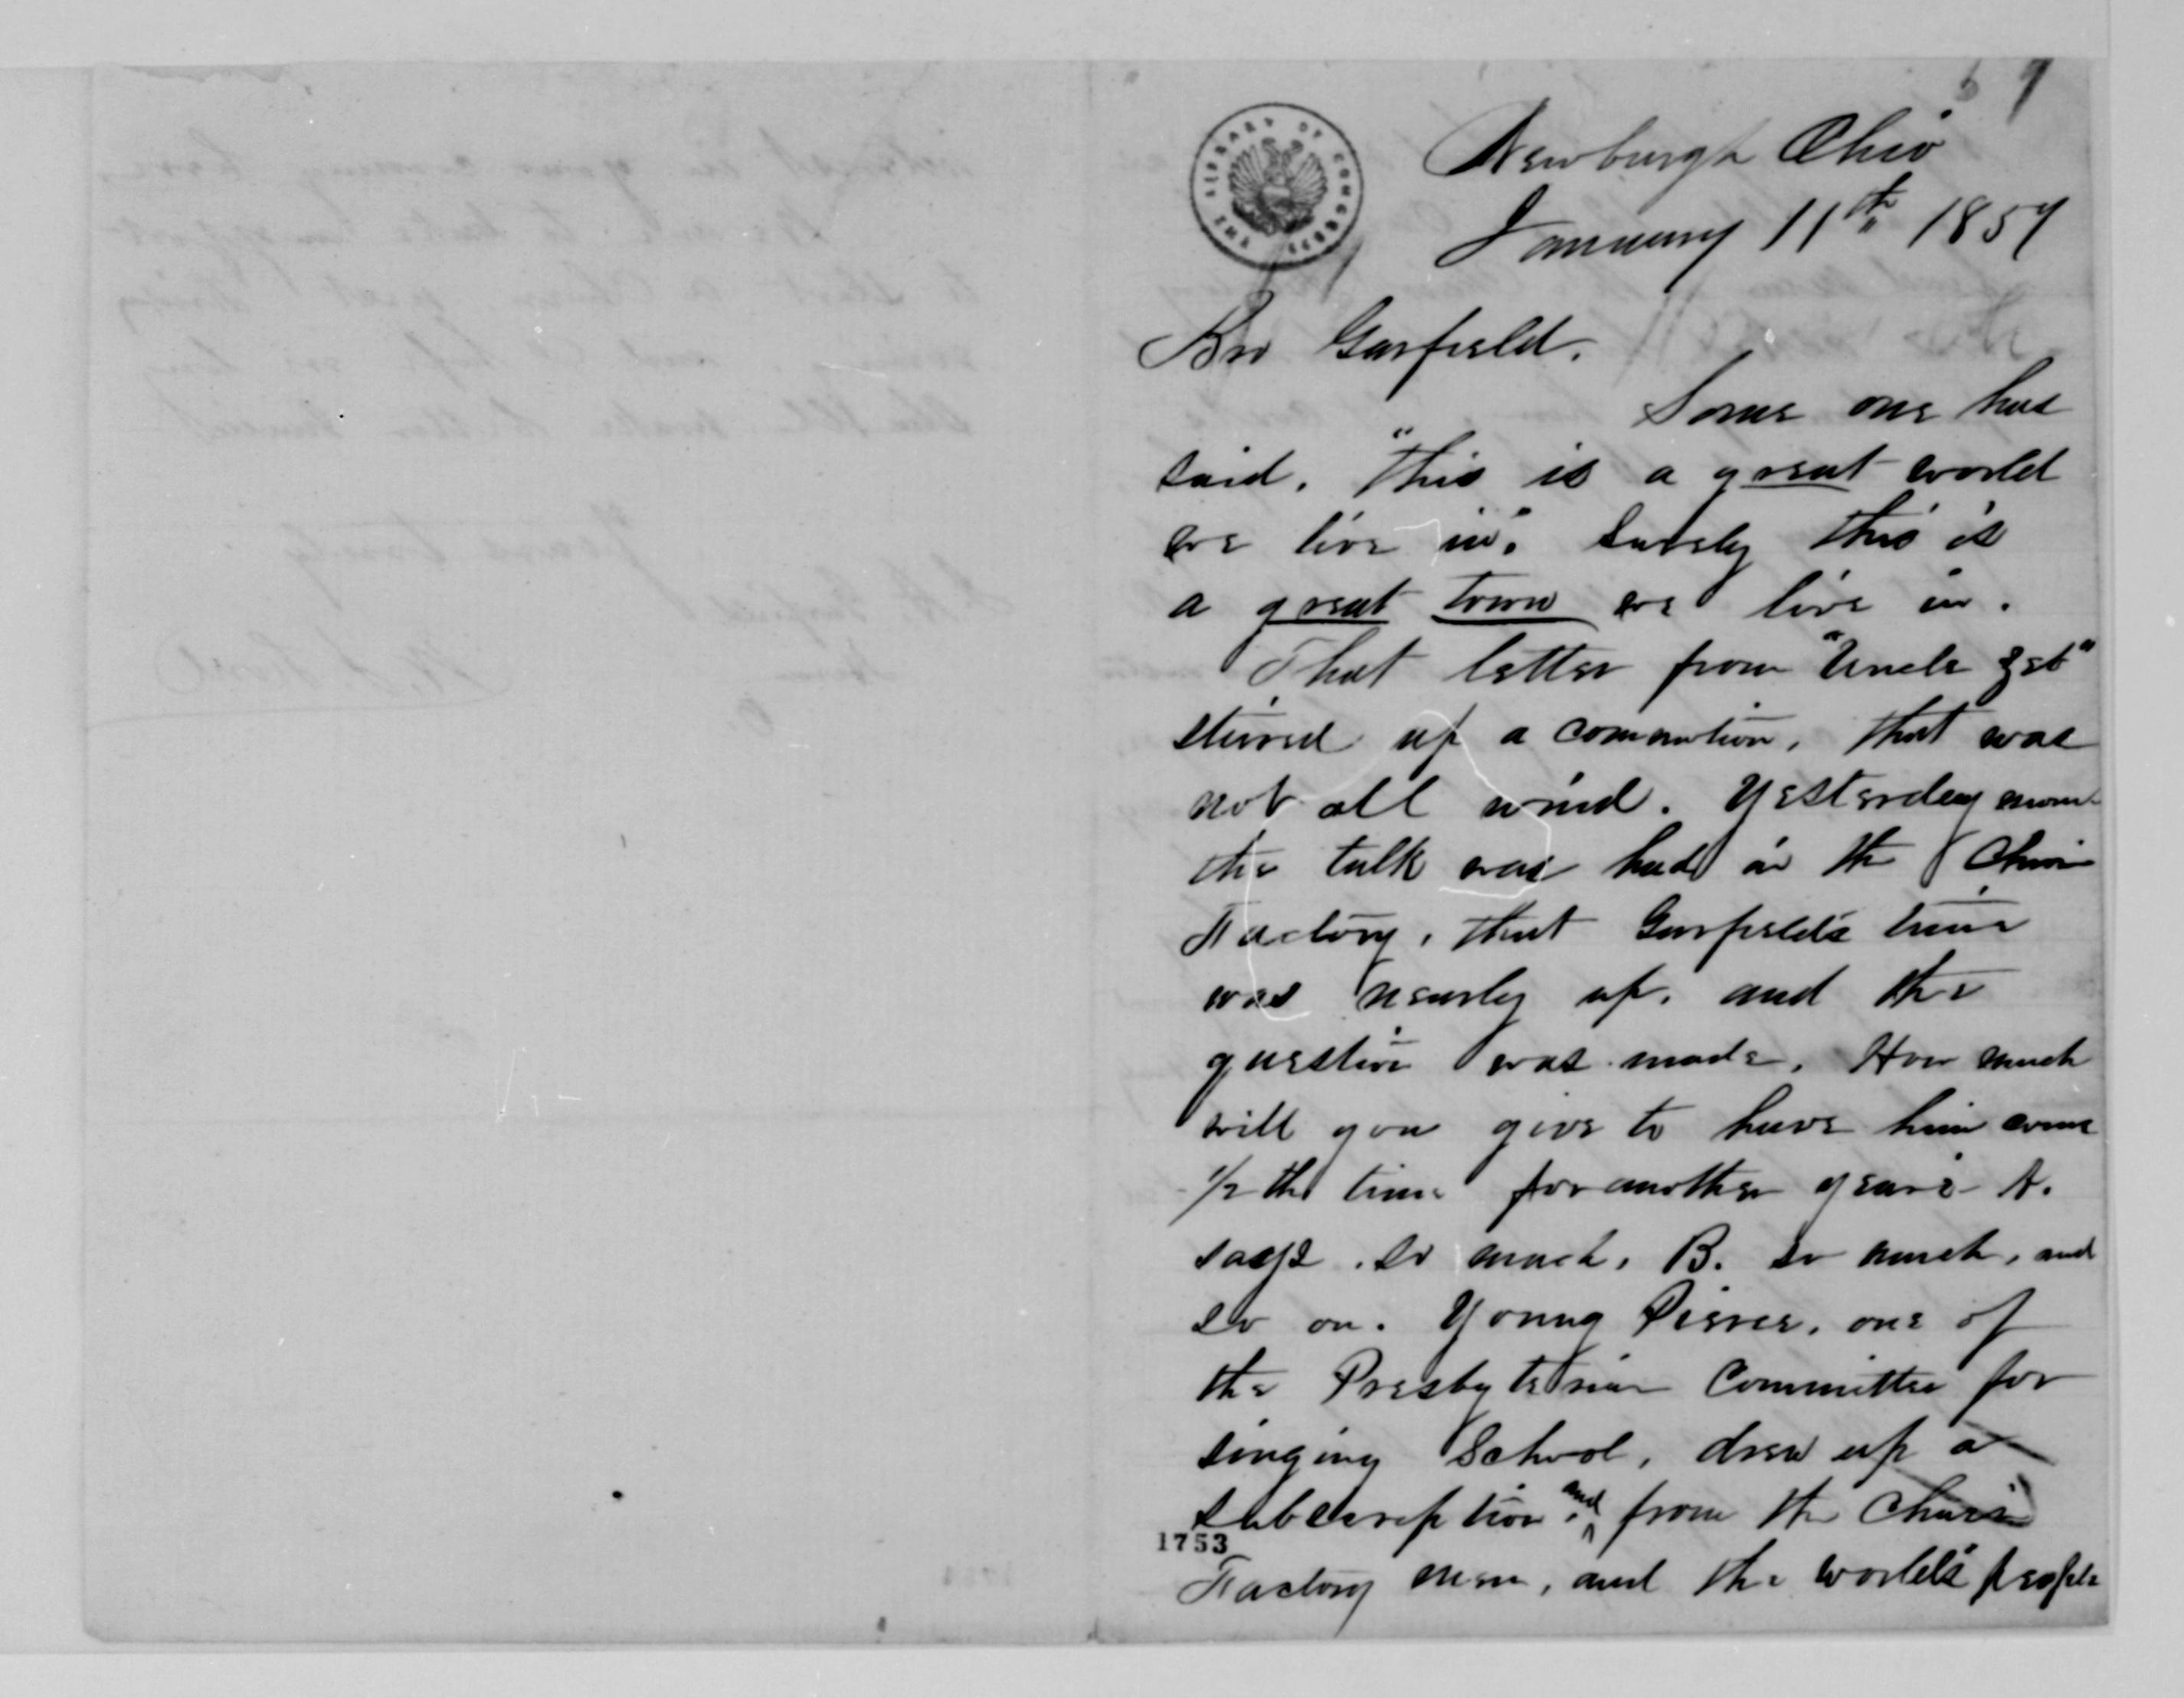 Newburgh Ohio
January 11th 1859
Bro Garfield.
Some one has
said. "This is a great world
we live in". Surely this is
a great town we live in.
That letter from "Uncle Zeb"
stirred up a commotion, that was
not all wind. Yesterday morn
the talk was had in the Chair
Factory, that Garfield's time
was nearly up, and the
question was made, How much
will you give to have him come
1/2 the time for another year? A.
says so much, B. so much, and
so on. Young Pierce, one of
the Presbyterian Committee for
singing School, drew up a
subscription, and from the Chair
1753
Factory men, and the world's people
THE LIBRARY OF CONGRESS